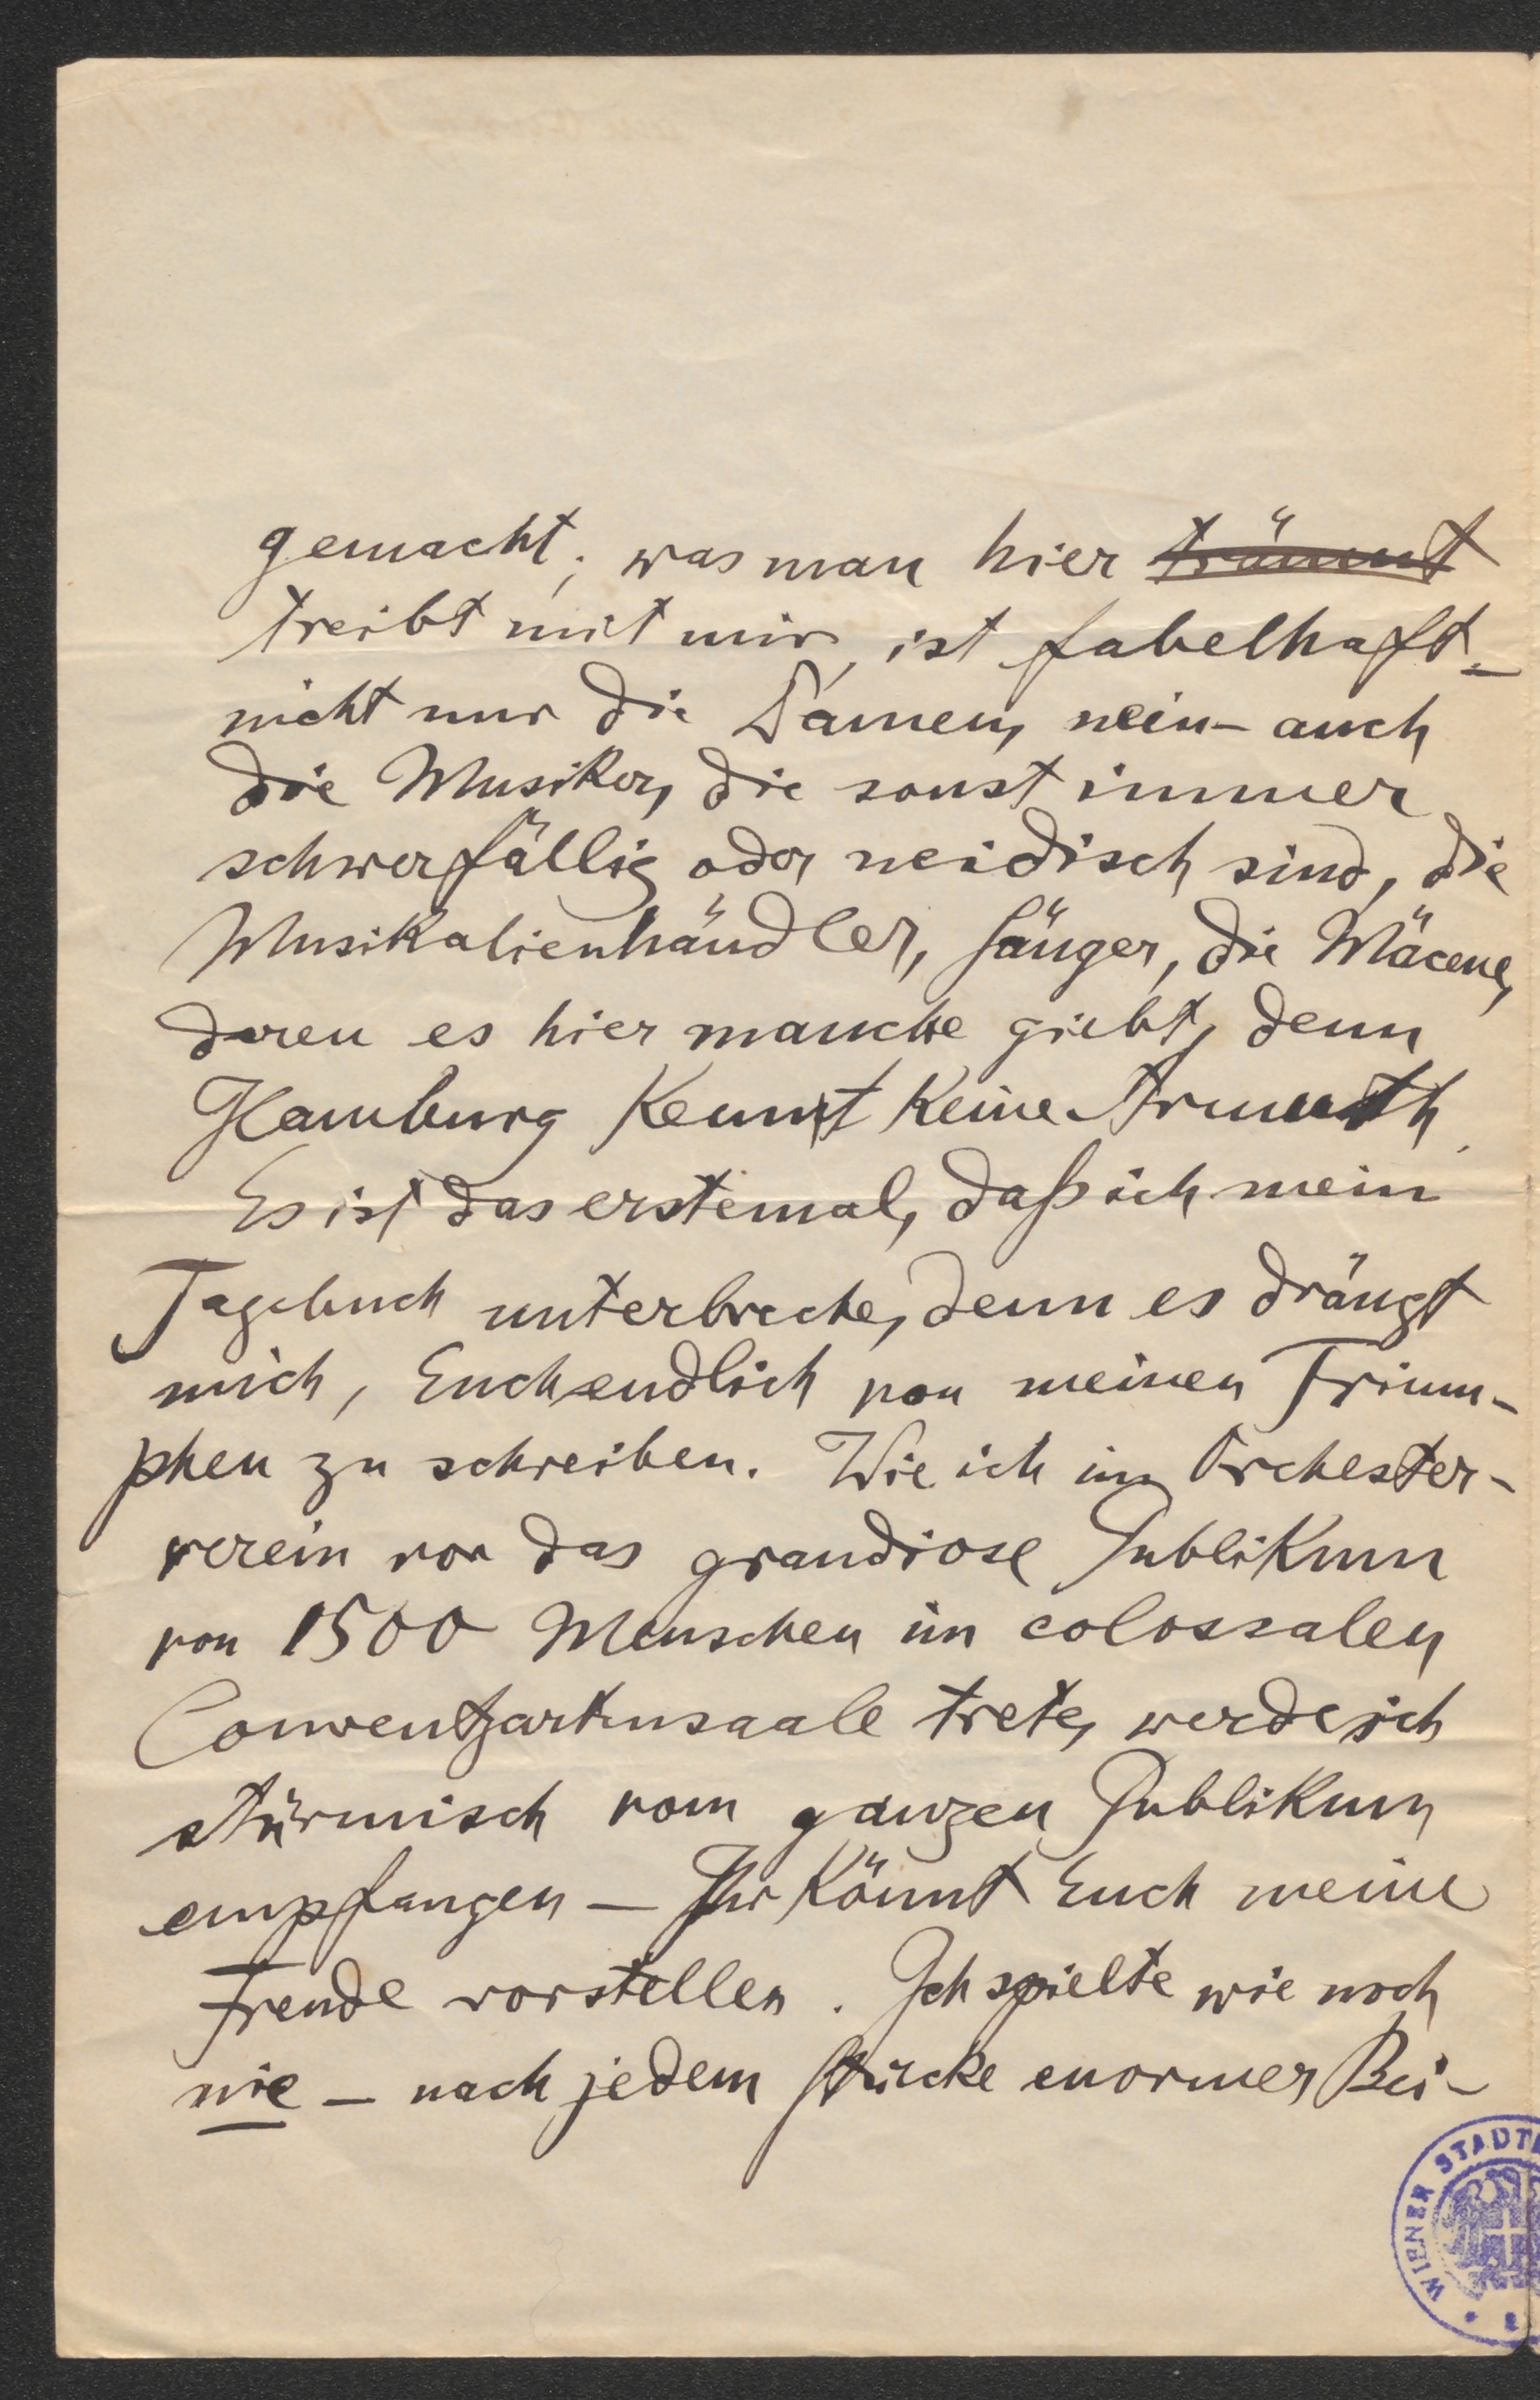 gemacht; was man hier träumt
treibt mit mir, ist fabelhaft –
nicht nur die Damen, nein – auch
die Musiker, die sonst immer
schwerfällig oder neidisch sind, die
Musikalienhändler, Sänger, die Mäcene,
deren es hier manche giebt, denn
Hamburg kennt keine Armuth.
Es ist das erstemal, daß ich mein
Tagebuch unterbreche, denn es drängt
mich, Euch endlich von meinen Trium-
phen zu schreiben. Wie ich im Orchester-
verein vor das grandiose Publikum
von 1500 Menschen im colossalen
Conventgartensaale trete, werde ich
stürmisch vom ganzen Publikum
empfangen – Ihr könnt Euch meine
Freude vorstellen. Ich spielte wie noch
nie – nach jedem Stücke enormer Bei-
WIENER STADT